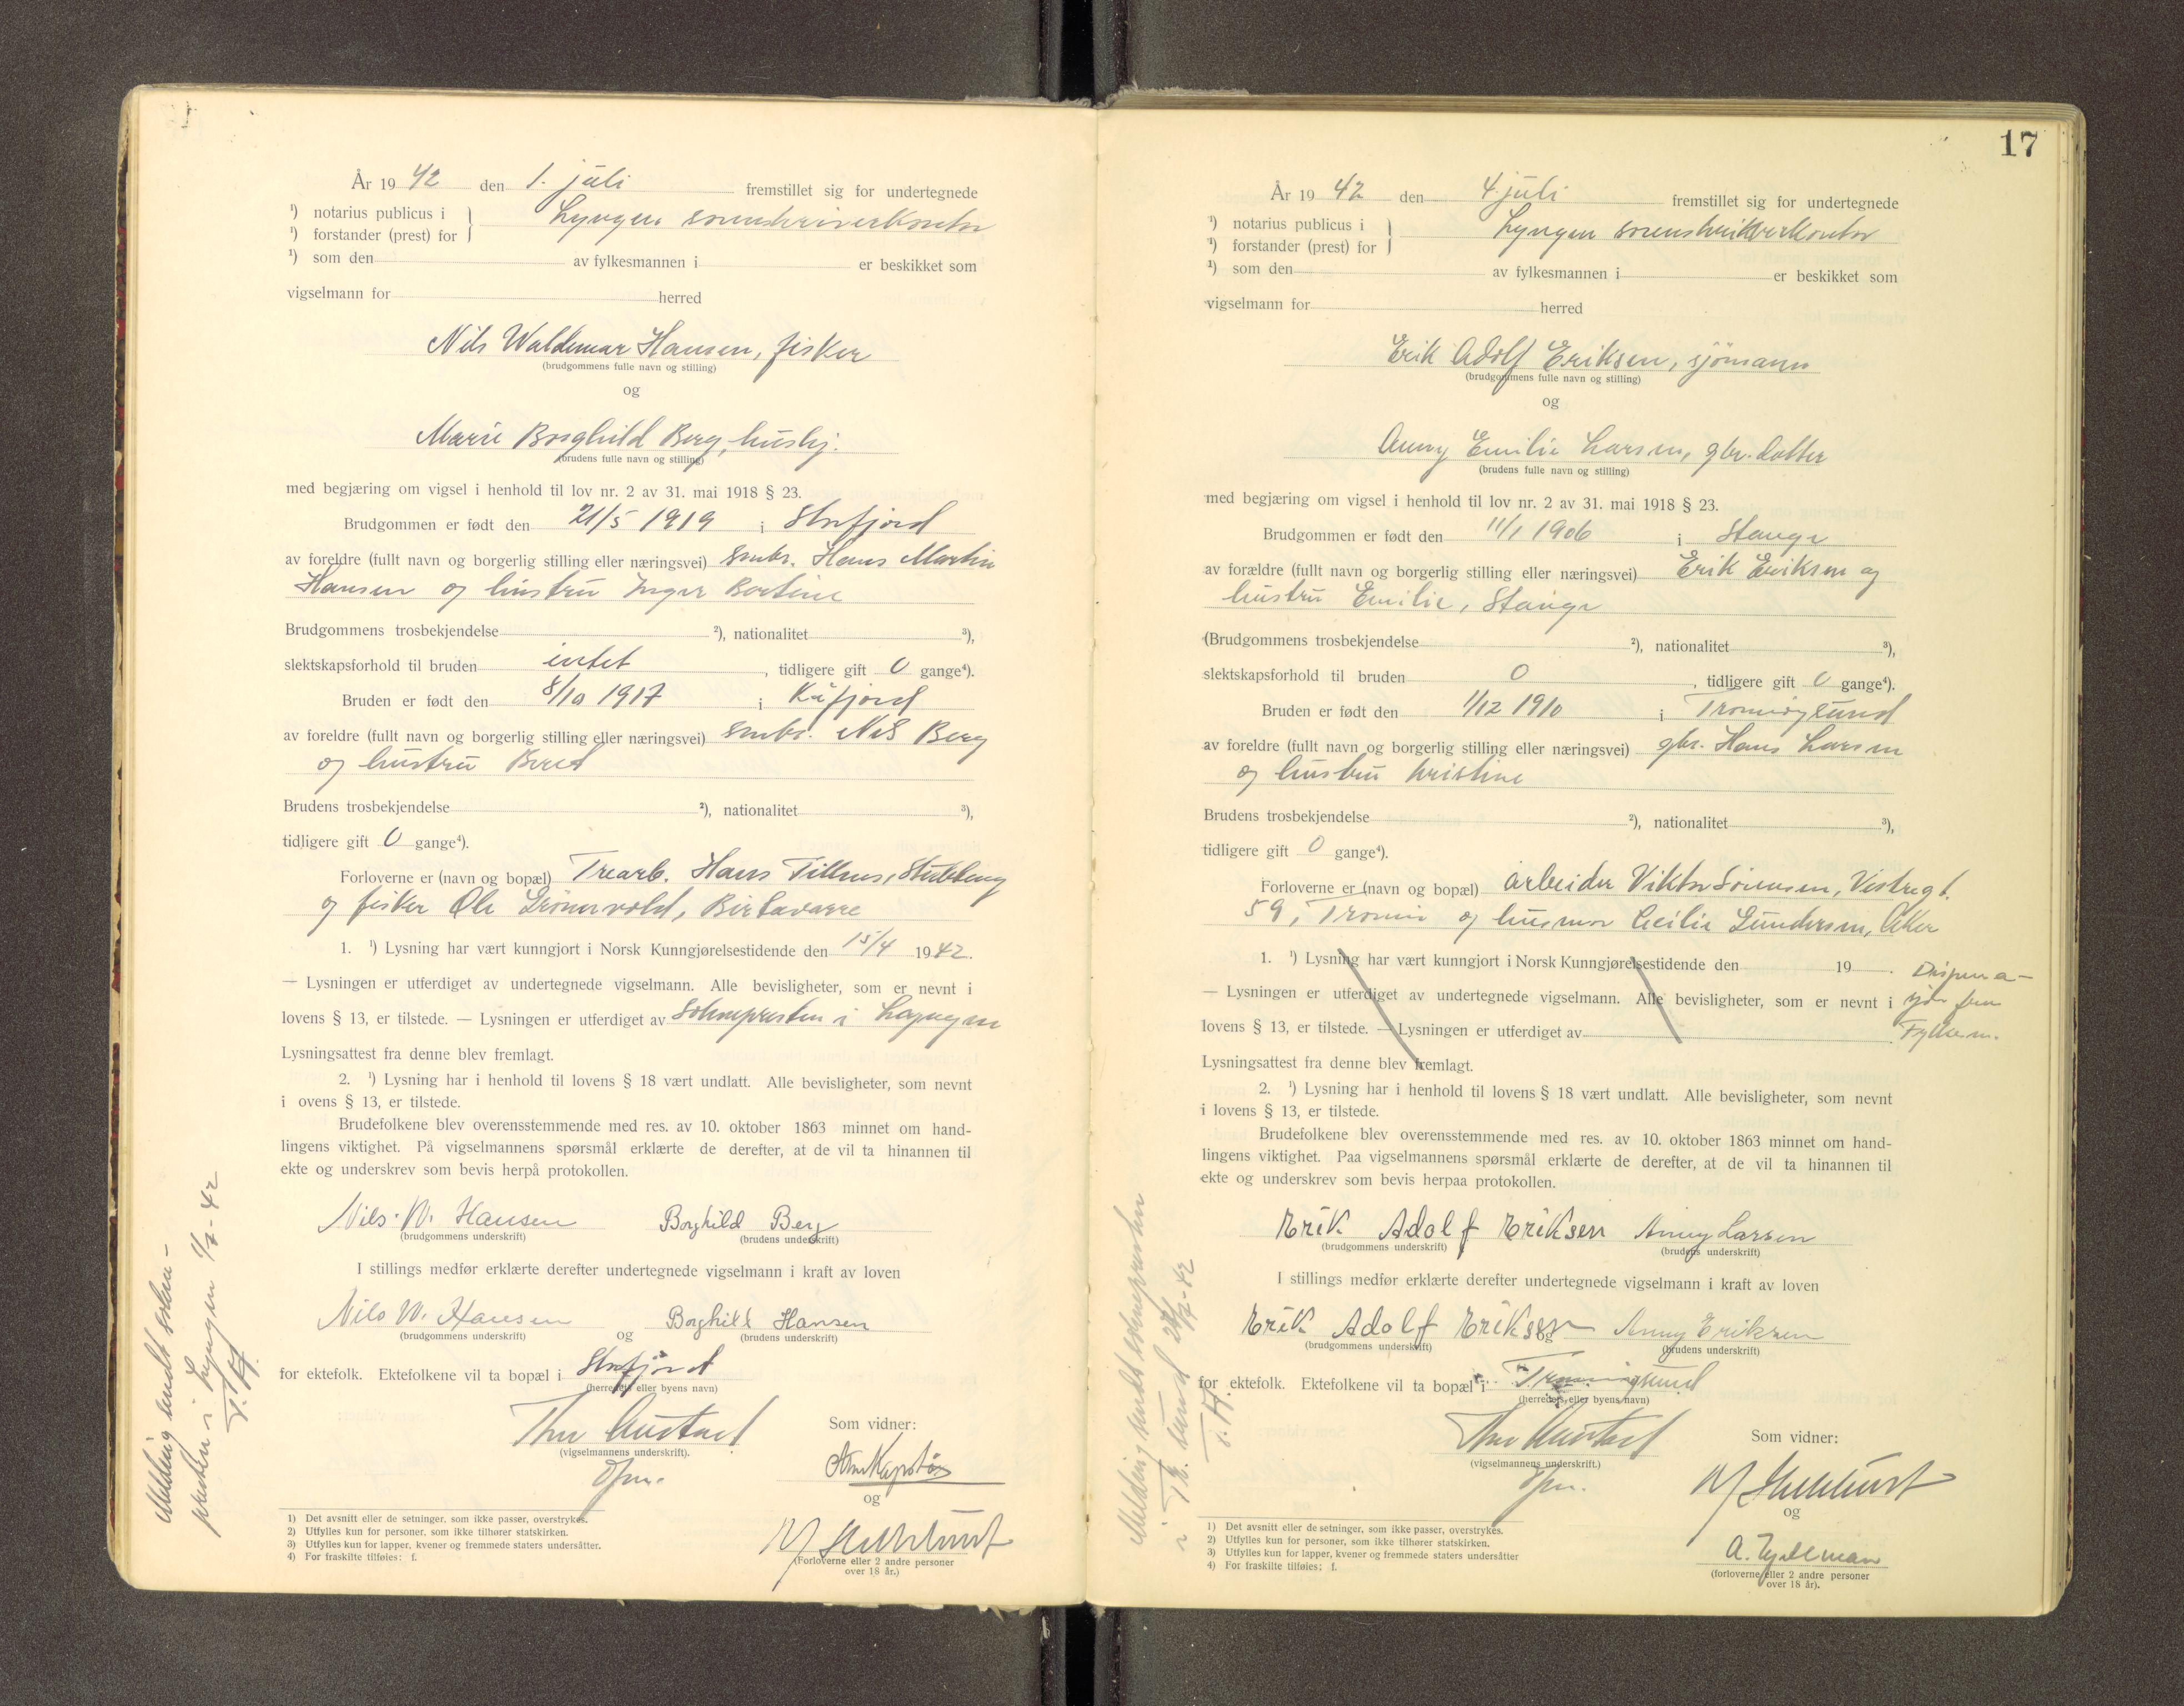 År 19 42 den 1. juli fremstillet sig for undertegnede
¹) notarius publicus i } Lyngen sorenskriverkontor
¹) forstander (prest) for
¹) som den av fylkesmannen i er beskikket som
vigselmann for herred
Nils Waldemar Hansen, fisker
(brudgommens fulle navn og stilling)
og
Marie Borghild Berg, hushj.
(brudens fulle navn og stilling)
med begjæring om vigsel i henhold til lov nr. 2 av 31. mai 1918 § 23.
Brudgommen er født den 21/5 1919 i Storfjord
av foreldre (fullt navn og borgerlig stilling eller næringsvei) smbr. Hans Martin
Hansen og hustru Inger Bertine
Brudgommens trosbekjendelse ²), nationalitet ³),
slektskapsforhold til bruden intet , tidligere gift 0 gange⁴).
Bruden er født den 8/10 1917 i Kåfjord
av foreldre (fullt navn og borgerlig stilling eller næringsvei) smbr. Nils Berg
og hustru Berit
Brudens trosbekjendelse ²), nationalitet ³),
tidligere gift 0 gange⁴).
Forloverne er (navn og bopæl) Trearb. Hans Tillrus,
og fisker Ole Grönnvold, Birtavarre
1. ¹) Lysning har vært kunngjort i Norsk Kunngjørelsestidende den 15/4 1942.
— Lysningen er utferdiget av undertegnede vigselmann. Alle bevisligheter, som er nevnt i
lovens § 13, er tilstede. — Lysningen er utferdiget av Soknepresten i Lyngen
Lysningsattest fra denne blev fremlagt.
2. ¹) Lysning har i henhold til lovens § 18 vært undlatt. Alle bevisligheter, som nevnt
i ovens § 13, er tilstede.
Brudefolkene blev overensstemmende med res. av 10. oktober 1863 minnet om hand-
lingens viktighet. På vigselmannens spørsmål erklærte de derefter, at de vil ta hinannen til
ekte og underskrev som bevis herpå protokollen.
Nils. W. Hansen Borghild Berg
(brudgommens underskrift) (brudens underskrift)
I stillings medfør erklærte derefter undertegnede vigselmann i kraft av loven
Nils W. Hansen og Borghild Hansen
(brudgommens underskrift) (brudens underskrift)
for ektefolk. Ektefolkene vil ta bopæl i Storfjord
(herredets eller byens navn)
Thor Austad Som vidner:
(vigselmannens underskrift).
og
(Forloverne eller 2 andre personer
over 18 år.)
1) Det avsnitt eller de setninger, som ikke passer, overstrykes.
2) Utfylles kun for personer, som ikke tilhører statskirken.
3) Utfylles kun for lapper, kvener og fremmede staters undersåtter.
4) For fraskilte tilføies: f.
Melding sendt sokne-
presten i Lyngen 1/7-42
17
År 19 42 den 4. juli fremstillet sig for undertegnede
¹) notarius publicus i } Lyngen sorenskriverkontor
¹) forstander (prest) for
¹) som den av fylkesmannen i er beskikket som
vigselmann for herred
Erik Adolf Eriksen, sjömann
(brudgommens fulle navn og stilling)
og
Anny Emilie Larsen, gbr. datter
(brudens fulle navn og stilling)
med begjæring om vigsel i henhold til lov nr. 2 av 31. mai 1918 § 23.
Brudgommen er født den 11/1 1906 i Stange
av forældre (fullt navn og borgerlig stilling eller næringsvei) Erik Eriksen og
hustru Emilie, Stange
(Brudgommens trosbekjendelse ²), nationalitet ³),
slektskapsforhold til bruden 0 , tidligere gift 0 gange⁴).
Bruden er født den 1/12 1910 i Tromsöysund
av foreldre (fullt navn og borgerlig stilling eller næringsvei) gbr. Hans Larsen
og hustru Kristine
Brudens trosbekjendelse ²), nationalitet ³),
tidligere gift 0 gange⁴).
Forloverne er (navn og bopæl) arbeider Viktor Sörensen, Vestregt.
59, Tromsö og husmor Cecilie Gundersen, Aker
1. ¹) Lysning har vært kunngjort i Norsk Kunngjørelsestidende den 19 .
— Lysningen er utferdiget av undertegnede vigselmann. Alle bevisligheter, som er nevnt i
lovens § 13, er tilstede. — Lysningen er utferdiget av
Dispensa-
sjon fra
Fylkesm.
Lysningsattest fra denne blev fremlagt.
2. ¹) Lysning har i henhold til lovens § 18 vært undlatt. Alle bevisligheter, som nevnt
i lovens § 13, er tilstede.
Brudefolkene blev overensstemmende med res. av 10. oktober 1863 minnet om hand-
lingens viktighet. Paa vigselmannens spørsmål erklærte de derefter, at de vil ta hinannen til
ekte og underskrev som bevis herpaa protokollen.
Erik Adolf Eriksen Anny Larsen
(brudgommens underskrift) (brudens underskrift)
I stillings medfør erklærte derefter undertegnede vigselmann i kraft av loven
Erik Adolf Eriksen og Anny Eriksen
(brudgommens underskrift) (brudens underskrift)
for ektefolk. Ektefolkene vil ta bopæl i Tromsöysund
(herredets eller byens navn)
Thor Austad Som vidner:
(vigselmannens underskrift.)
og
(forloverne eller 2 andre personer
over 18 år).
1) Det avsnitt eller de setninger, som ikke passer, overstrykes.
2) Utfylles kun for personer, som ikke tilhører statskirken.
3) Utfylles kun for lapper, kvener og fremmede staters undersåtter
4) For fraskilte tilføies: f.
Melding sendt soknepresten
i Tr. sund